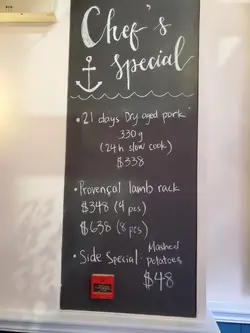 Chef's
Special
• 21 days Dry aged pork
330g
(24h slow cook)
$338
• Provençal lamb rack
$348 (4 pcs)
$638 (8 pcs)
• Side Special: Mashed
potatoes
$48